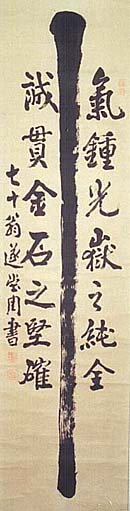 氣鍾光嶽之純全
誠貫金石之堅確
七十翁遂堂周書